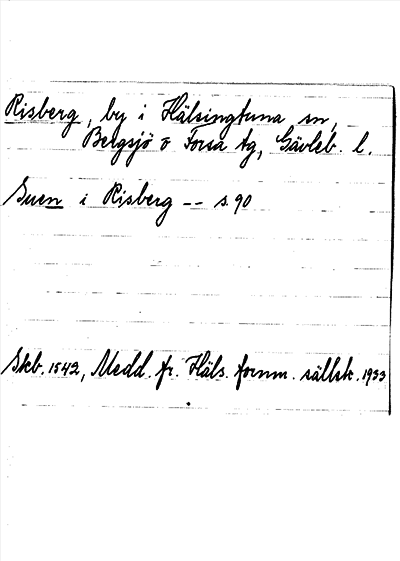 Risberg, by i Hälsingtuna sn,
Bergsjö o Forsa tg, Gävleb. l.
Suen i Risberg -- s. 90
Skb. 1542, Medd. fr. Häls. fornm. sällsk. 1933